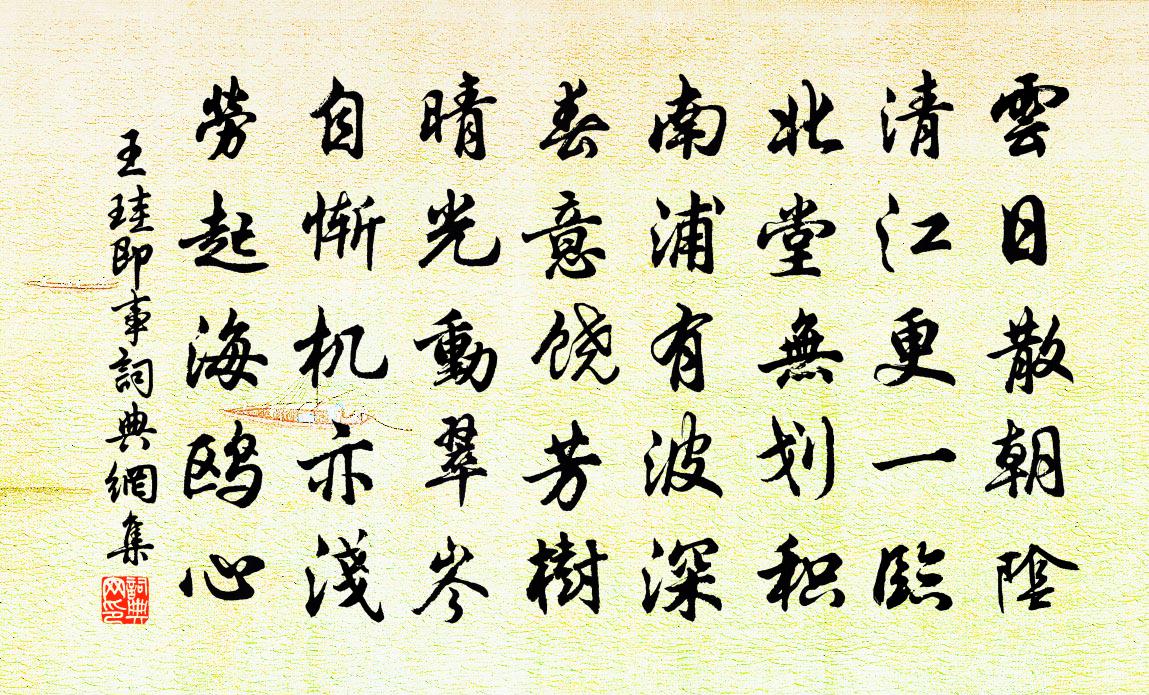 雲日散朝陰
清江更一臨
北堂無划积
南浦有波深
春意饶芳樹
晴光動翠岑
自惭机亦淺
勞起海鸥心
王珪即事詞典網集
詞典网印